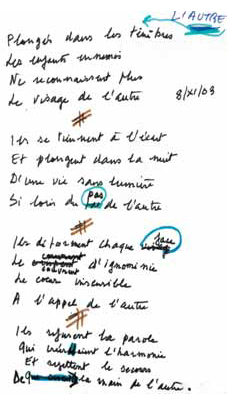 L'AUTRE
Plongés dans les ténèbres
Les enfants ennemis
Ne reconnaissent plus
Le visage de l'autre 8/XI/03
#
Ils se tiennent à l'écart
Et plongent dans la nuit
D'une vie sans lumière
Si loin du pas de l'autre
#
Ils déforment chaque face
Le d'ignominie
Le cœur insensible
A l'appel de l'autre
#
Ils refusent la parole
Qui l'harmonie
Et rejettent le secours
De la main de l'autre.